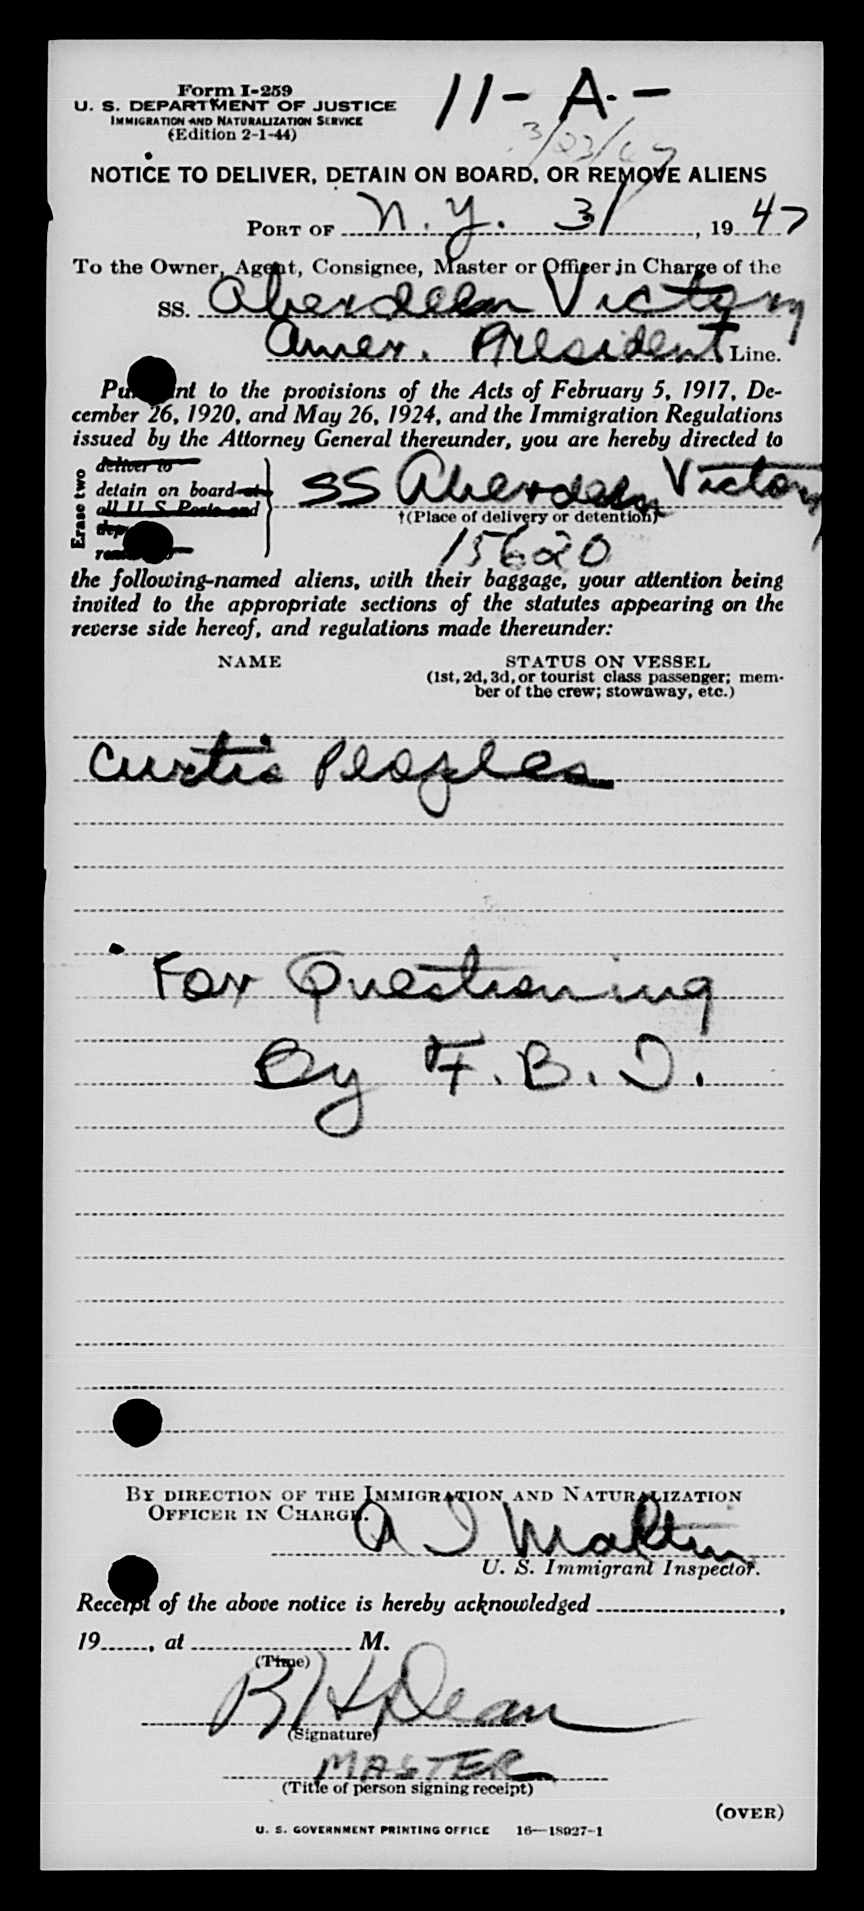 Form I-259
U. S. DEPARTMENT OF JUSTICE
IMMIGRATION AND NATURALIZATION SERVICE
(Edition 2-1-44)
11-A-
3/23/47
NOTICE TO DELIVER, DETAIN ON BOARD, OR REMOVE ALIENS
PORT OF N.Y. 3/ , 19 47
To the Owner, Agent, Consignee, Master or Officer in Charge of the
SS. Aberdeen Victory
Amer. President Line.
Pursuant to the provisions of the Acts of February 5, 1917, De-
cember 26, 1920, and May 26, 1924, and the Immigration Regulations
issued by the Attorney General thereunder, you are hereby directed to
Erase two
deliver to
detain on board at SS Aberdeen Victory
all U S Ports and
†(Place of delivery or detention)
15620
the following-named aliens, with their baggage, your attention being
invited to the appropriate sections of the statutes appearing on the
reverse side hereof, and regulations made thereunder:
NAME STATUS ON VESSEL
(1st, 2d, 3d, or tourist class passenger; mem-
ber of the crew; stowaway, etc.)
Curtis Peoples
For Questioning
By F.B.I.
BY DIRECTION OF THE IMMIGRATION AND NATURALIZATION
OFFICER IN CHARGE.
U. S. Immigrant Inspector.
Receipt of the above notice is hereby acknowledged ,
19 , at M.
(Time)
Dean
(Signature)
MASTER
(Title of person signing receipt)
(OVER)
U. S. GOVERNMENT PRINTING OFFICE 16—18927-1